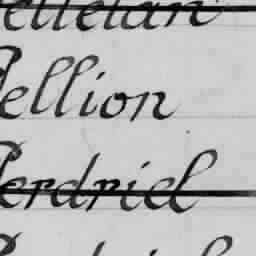 Pelletan
Pellion
Perdriel